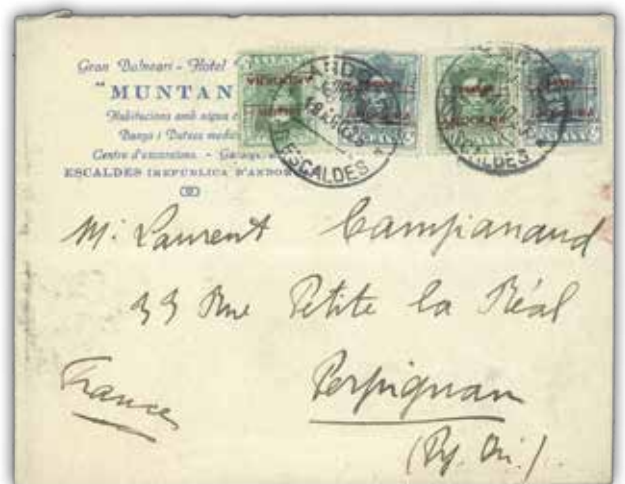 Gran Balneari - Hotel
"MUNTAN
Habitacions amb aigua c
Banys i Dutxes medic
Centre d'excursions. - Garatge
ESCALDES (REPÚBLICA D'ANDOR
CORREOS
ANDORRA
ESCALDES
M. Laurent Campianaud
33 Rue Petite la Réal
Perpignan
France
(Py. Or.)